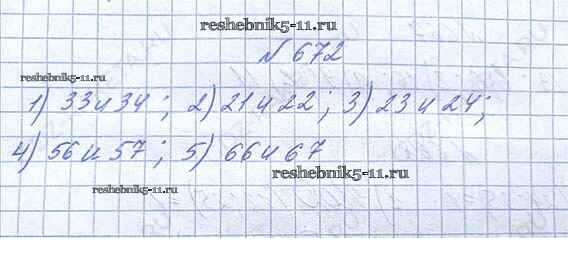 reshebnik5-11.ru
№ 672
reshebnik5-11.ru
1) 33 и 34; 2) 21 и 22; 3) 23 и 24;
4) 56 и 57; 5) 66 и 67
reshebnik5-11.ru
reshebnik5-11.ru